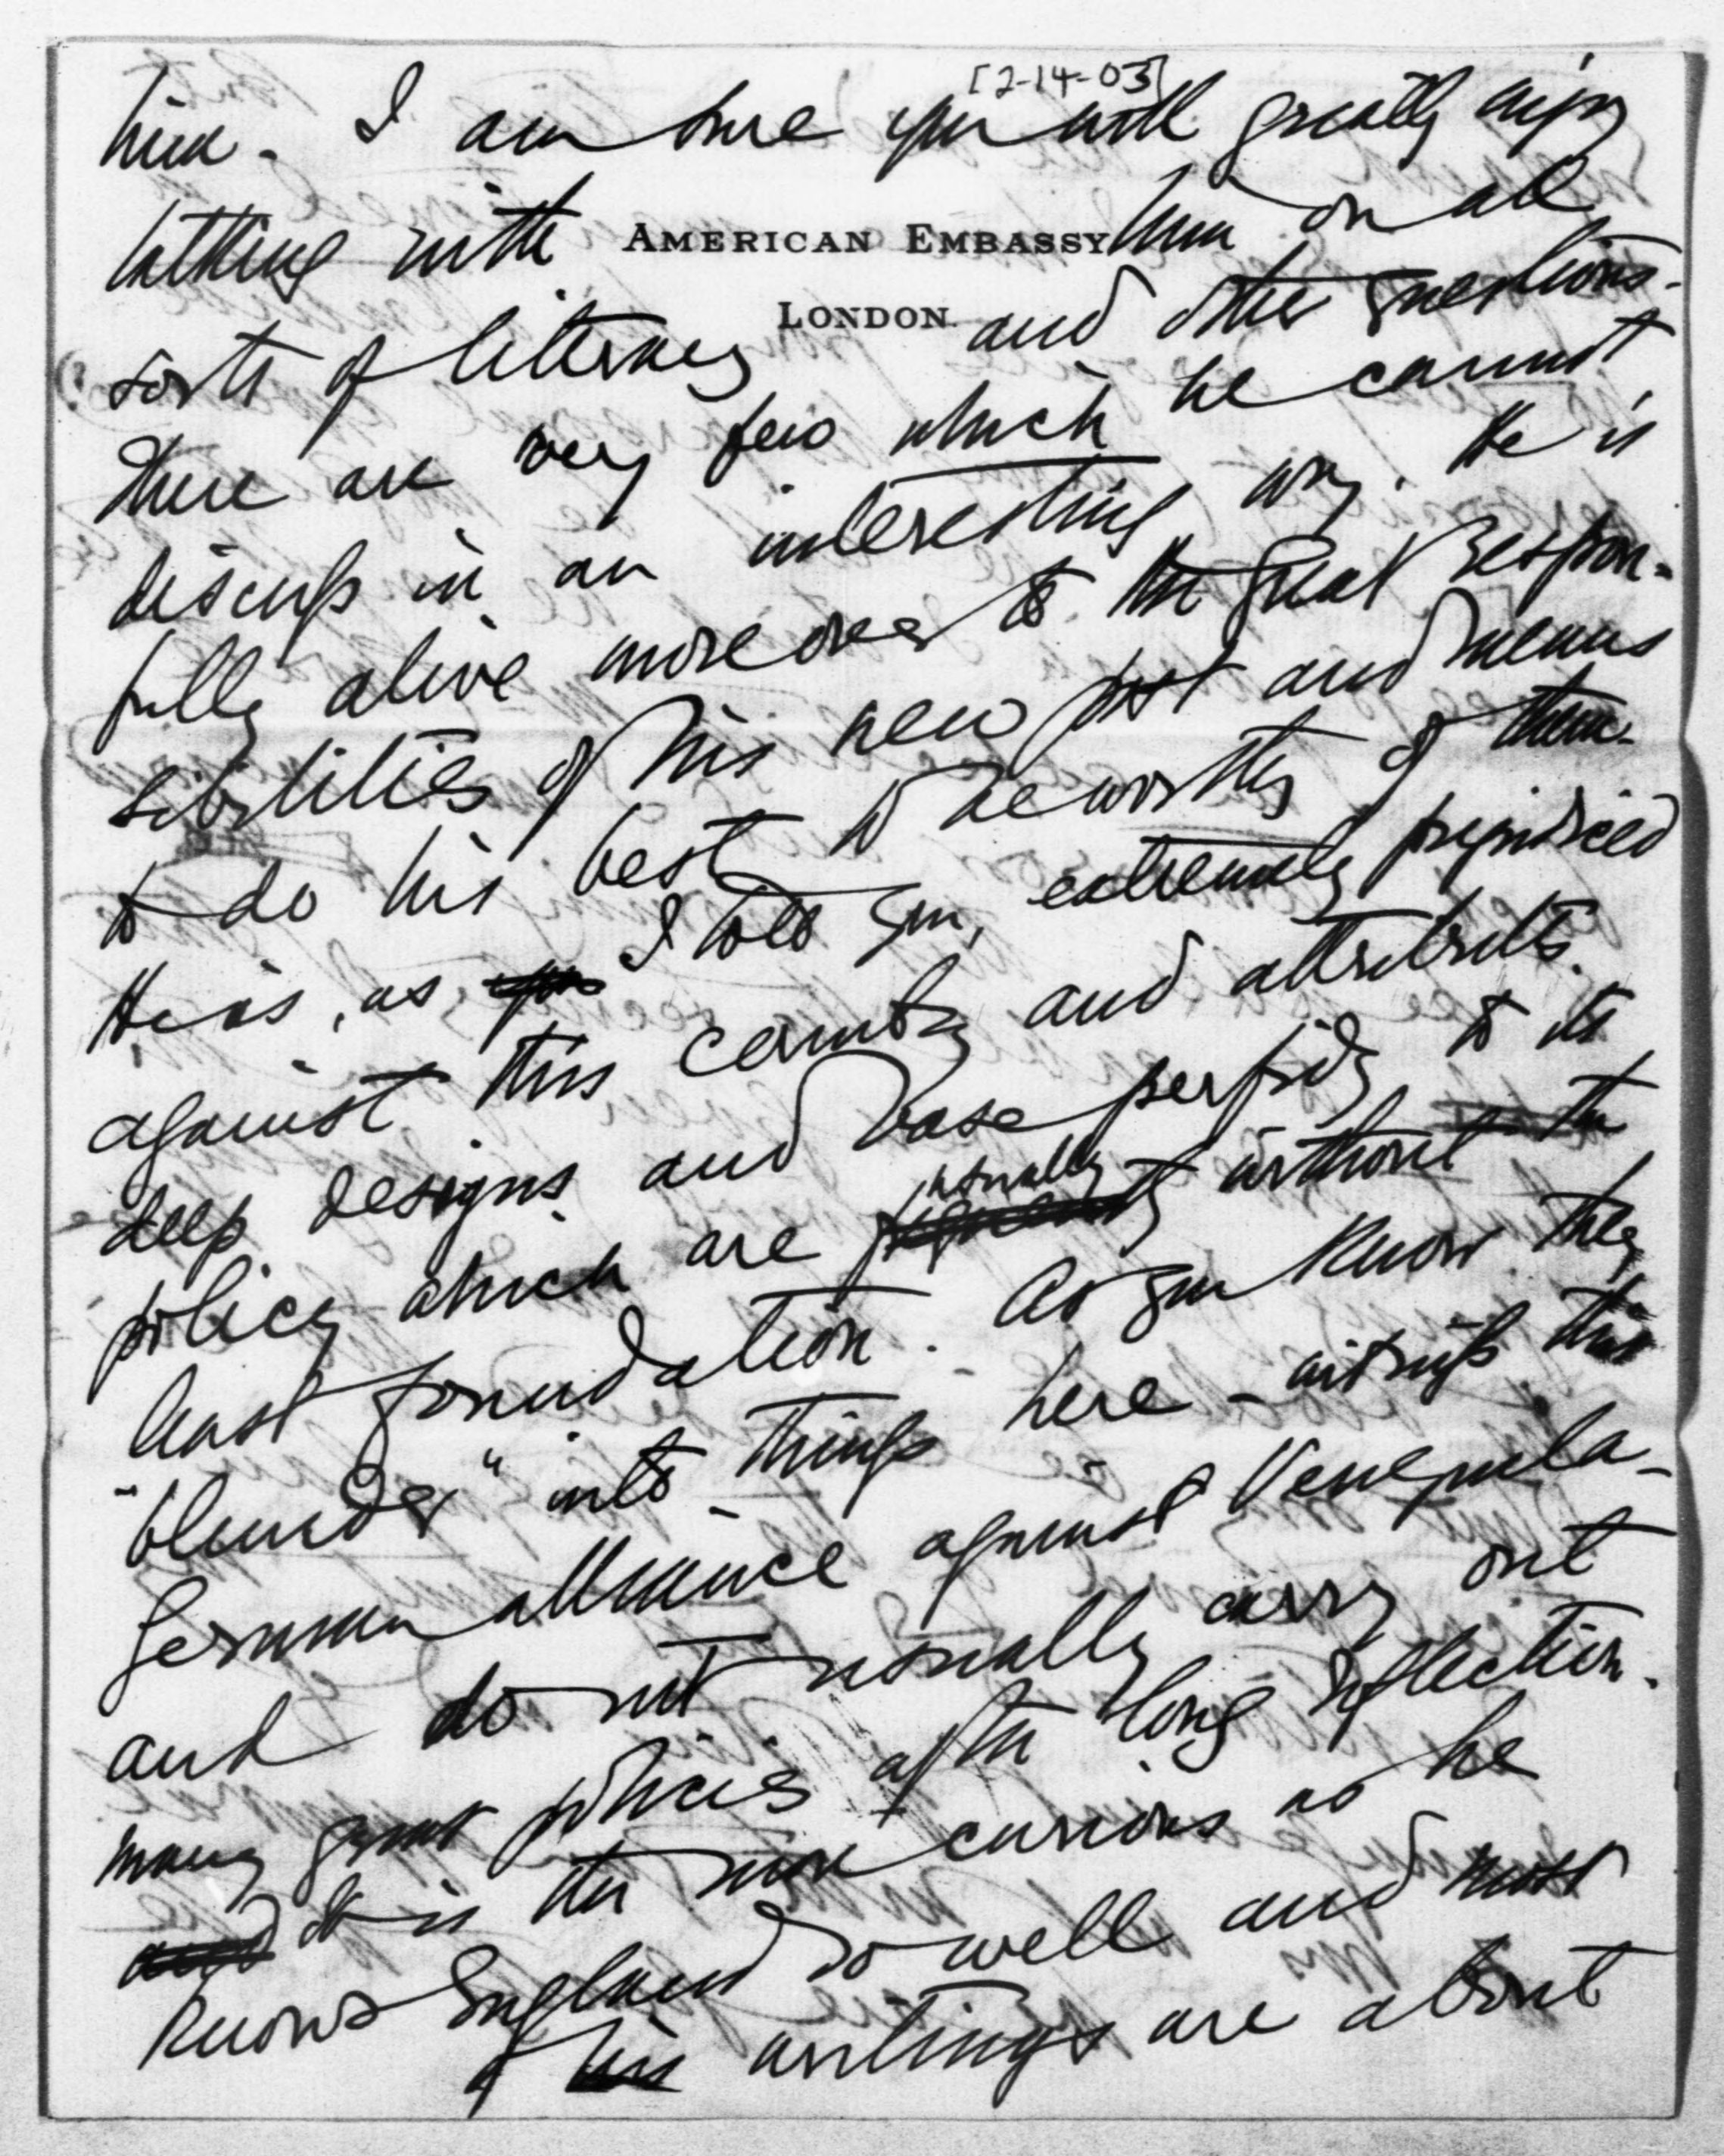 [2-14-03]
him. I am sure you will greatly enjoy
talking with him on all
AMERICAN EMBASSY
LONDON
sorts of literary and other questions.
There are very few which he cannot
discuss in an interesting way. He is
fully alive moreover to the great respon-
sibilities of his new post and means
to do his best to be worthy of them.
He is, as you I told you, extremely prejudiced
against this country and attributes
deep designs and base perfidy to its
policy which are usually without the
least foundation. As you know they
"blunder" into things here - witness this
German alliance against Venezuela -
and do not usually carry out
many great policies after long reflection.
and It is the more curious as he
knows England so well and most
of his writings are about